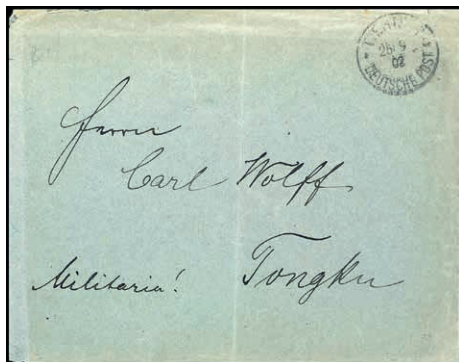 25/9
02
DEUTSCHE POST
Herrn
Carl Wolff
Militaria!
Tongku